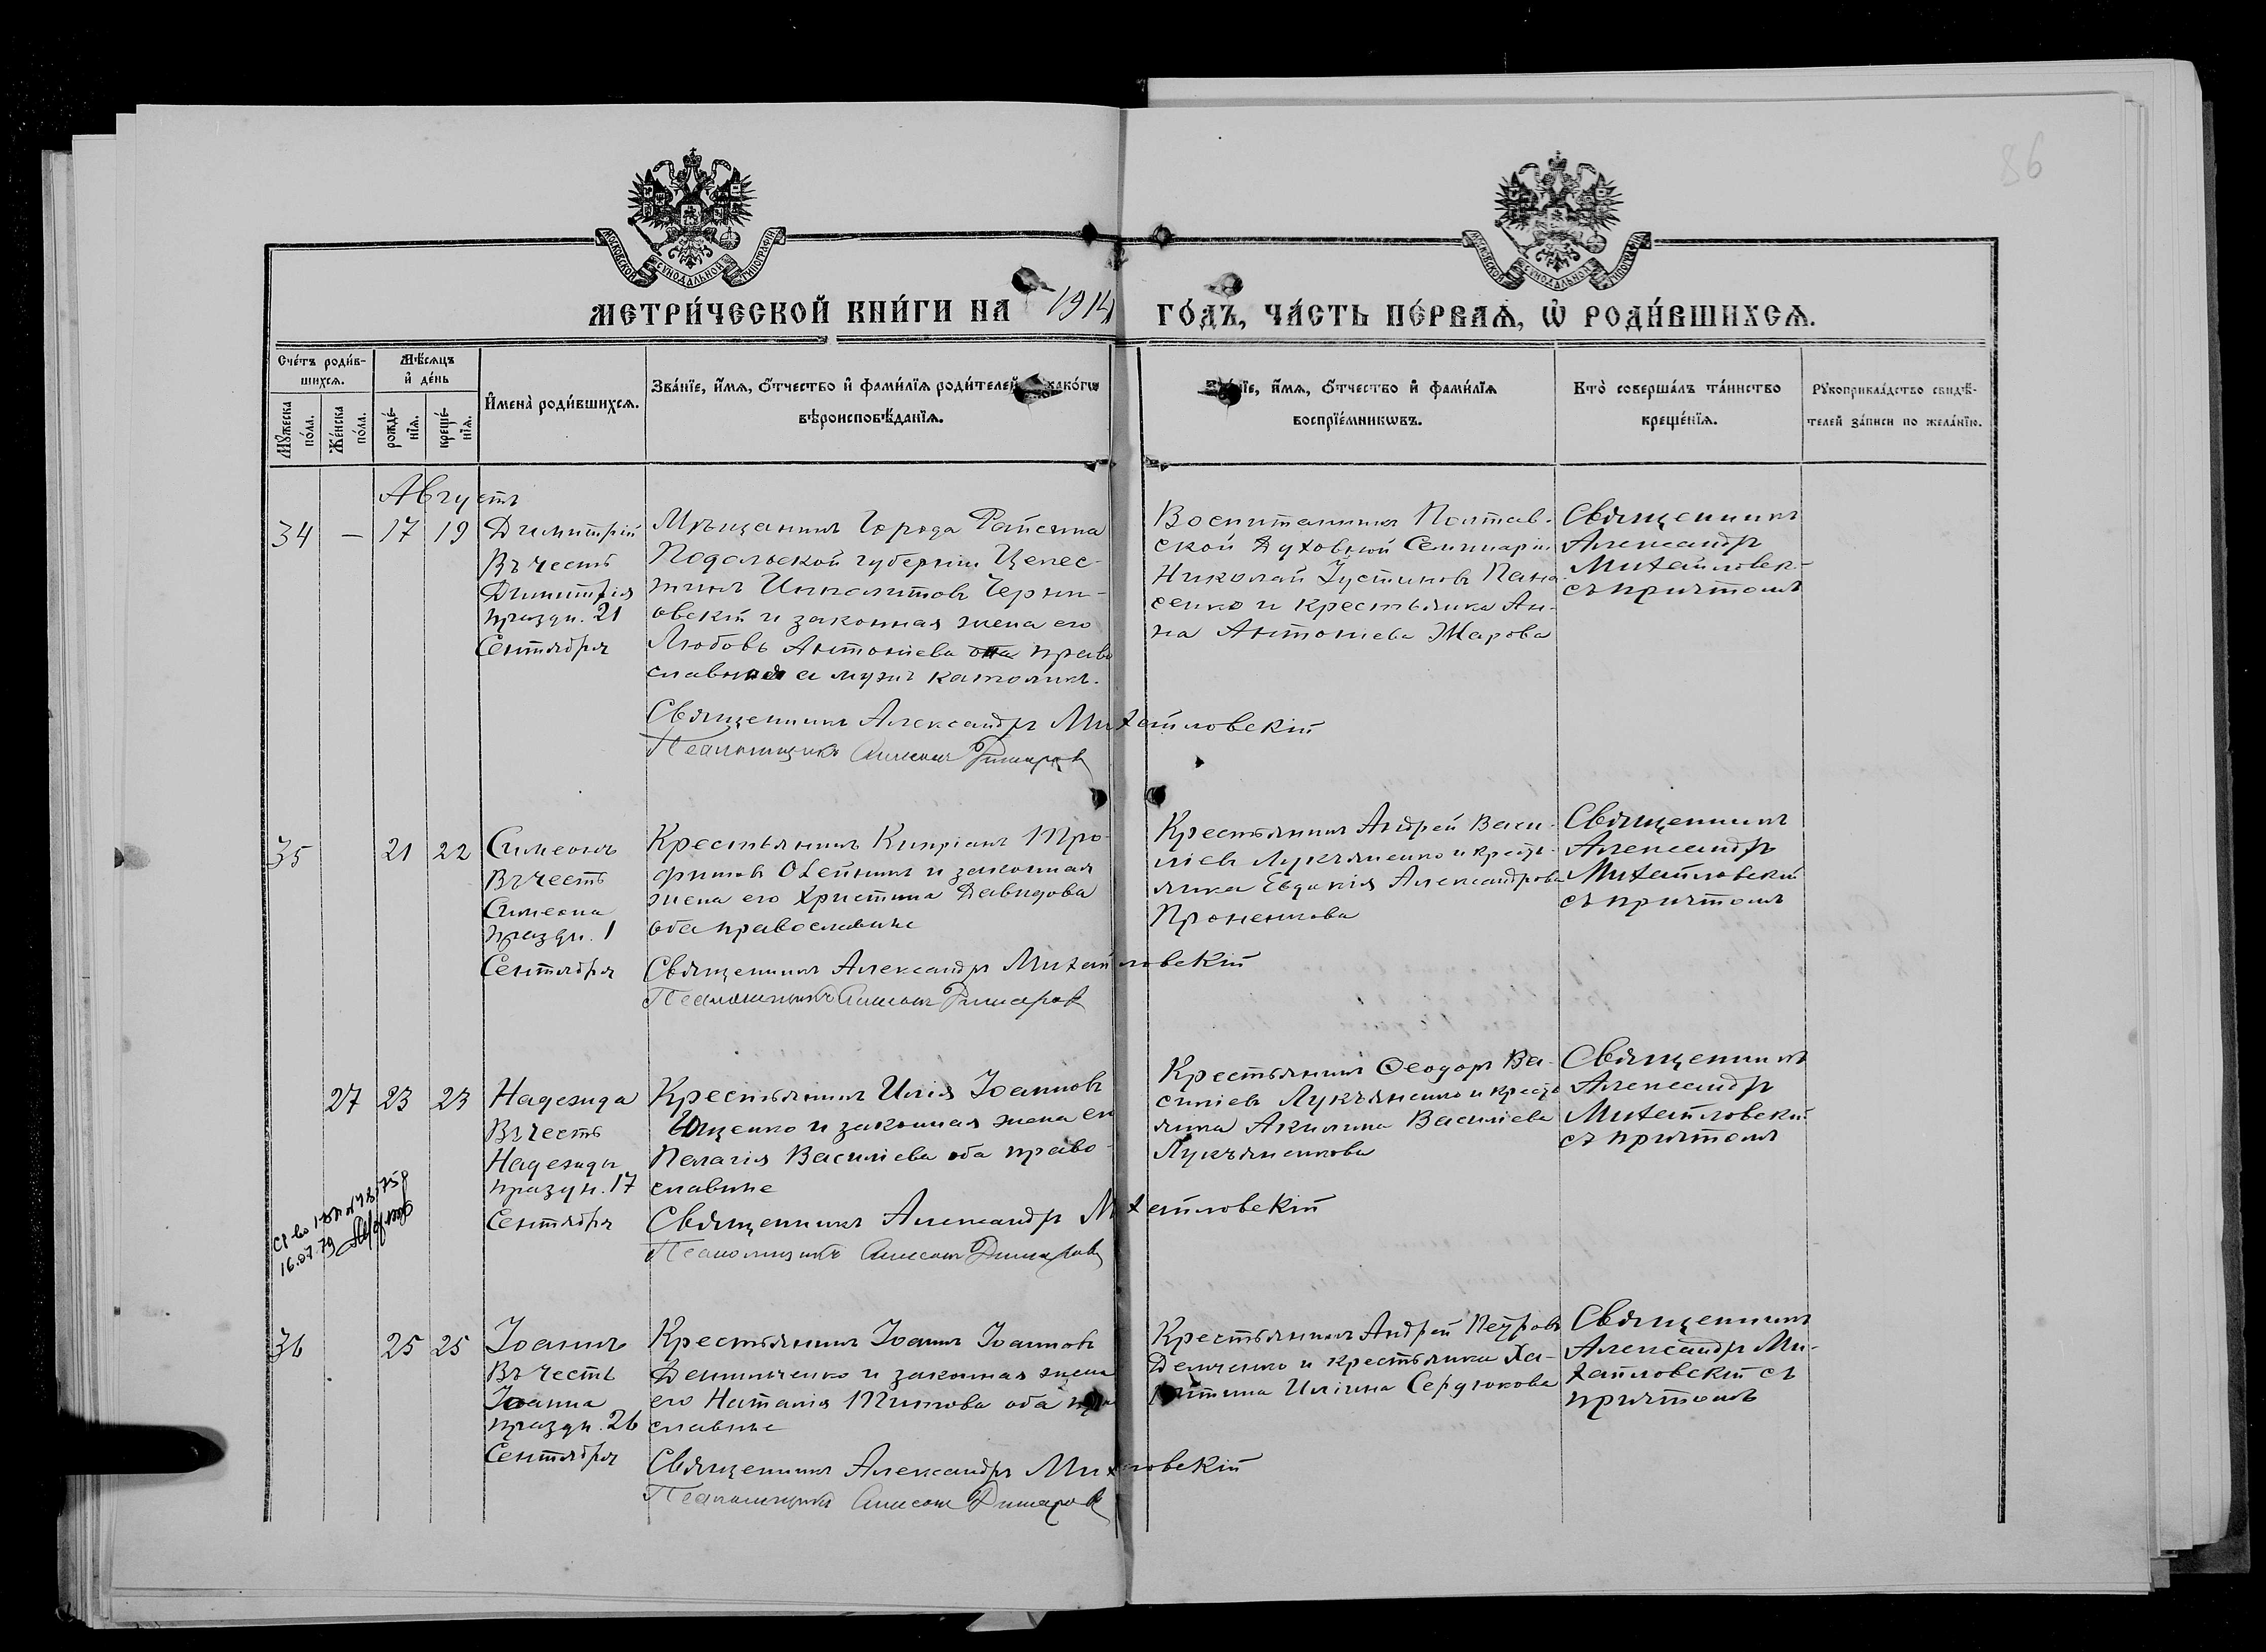 86
МОСКОВСКОЙ СѴНОДАЛЬНОЙ ТИПОГРАФІИ
МОСКОВСКОЙ СѴНОДАЛЬНОЙ ТИПОГРАФІИ
МЕТРИ́ЧЕСКОЙ КНИ́ГИ НА 1914 ГО́ДЪ, ЧА́СТЬ ПЕ́РВАѦ, Ѡ҆ РОДИ́ВШИХСѦ.
Сче́тъ роди́в-
шихсѧ.
Мѣ́сѧцъ
и҆ де́нь
Мꙋ́жеска
по́ла.
Же́нска
по́ла.
рожде́-
нїѧ.
креще́-
нїѧ.
И҆мена̀ роди́вшихсѧ.
Зва́нїе, и҆́мѧ, ѻ҆́тчество и҆ фами́лїѧ роди́телей
вѣроисповѣ́данїѧ.
и҆́мѧ, ѻ҆́тчество и҆ фами́лїѧ
воспрїе́мникѡвъ.
Кто̀ соверша́лъ та́инство
креще́нїѧ.
Рꙋкоприкла́дство свидѣ́-
телей за́писи по жела́нїю.
Августъ
34 — 17 19
Димитрій
Въ честь
Димитрія
праздн. 21
Сентября
Мѣщанинъ Города
Подольской губерніи Целес-
тинъ Ипполитовъ Черни-
овскій и законная жена его
Любовь Антоніева она право
славная а мужъ католикъ.
Священникъ Александръ Михайловскій
Псаломщикъ Симеонъ Димаровъ
Воспитанникъ Полтав-
ской Духовной Семинаріи
Николай Іустиновъ Пана
сенко и крестьянка Ан-
на Антоніева Жарова
Священникъ
Александръ
Михайловск-
съ причтомъ
35 21 22
Симеонъ
Въ честь
Симеона
праздн. 1
Сентября
Крестьянинъ Кипріанъ Тро-
фимовъ Олейникъ и законная
жена его Христина Давидова
оба православные
Священникъ Александръ Михайловскій
Псаломщикъ Симеонъ Димаровъ
Крестьянинъ Андрей Васи-
ліевъ Лукъяненко и кресть-
янка Евдокія Александрова
Проненкова
Священникъ
Александръ
Михайловскій
съ причтомъ
27 23 23
Надежда
Въ честь
Надежды
праздн. 17
Сентября
Крестьянинъ Илія Іоанновъ
Ющенко и законная жена ег
Пелагія Василіева оба право-
славные
Священникъ Александръ Михайловскій
Псаломщикъ Симеонъ Димаровъ
Крестьянинъ Ѳеодоръ Ва-
силіевъ Лукъяненко и кресть
янка Акилина Василіева
Лукъяненкова
Священникъ
Александръ
Михайловскій
съ причтомъ
16.07.79
36 25 25
Іоаннъ
Въ честь
Іоанна
праздн. 26
Сентября
Крестьянинъ Іоаннъ Іоанновъ
и законная жена
его Наталія Титова оба
славные
Священникъ Александръ Михайловскій
Псаломщикъ Симеонъ Димаровъ
Крестьянинъ Андрей Петровъ
Демченко и крестьянка Ха-
ритина Иліина Сердюкова
Священникъ
Александръ Ми-
хайловскій съ
причтомъ